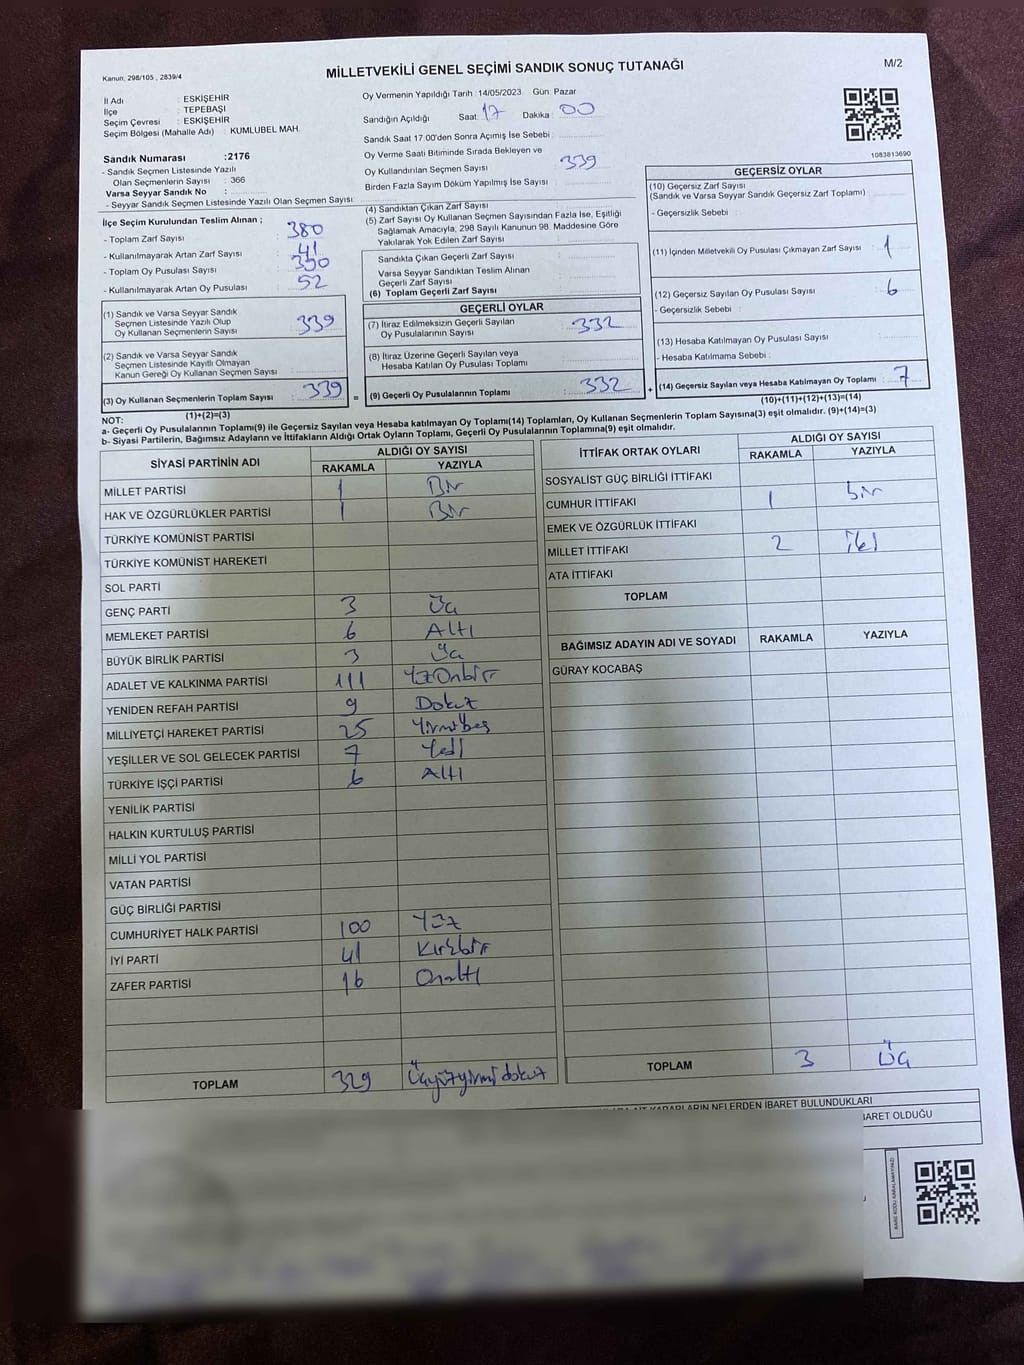 Kanun, 298/105 , 2839/4
MİLLETVEKİLİ GENEL SEÇİMİ SANDIK SONUÇ TUTANAĞI
M/2
İl Adı : ESKİŞEHİR
İlçe : TEPEBAŞI
Seçim Çevresi : ESKİŞEHİR
Seçim Bölgesi (Mahalle Adı) : KUMLUBEL MAH.
Sandık Numarası :2176
- Sandık Seçmen Listesinde Yazılı
Olan Seçmenlerin Sayısı : 366
Varsa Seyyar Sandık No :
- Seyyar Sandık Seçmen Listesinde Yazılı Olan Seçmen Sayısı:
Oy Vermenin Yapıldığı Tarih :14/05/2023 Gün: Pazar
Sandığın Açıldığı Saat: 17 Dakika : 00
Sandık Saat 17:00'den Sonra Açımış İse Sebebi :
Oy Verme Saati Bitiminde Sırada Bekleyen ve
Oy Kullandırılan Seçmen Sayısı : 339
Birden Fazla Sayım Döküm Yapılmış İse Sayısı :
1083813690
İlçe Seçim Kurulundan Teslim Alınan ;
- Toplam Zarf Sayısı : 380
- Kullanılmayarak Artan Zarf Sayısı : 41
- Toplam Oy Pusulası Sayısı : 390
- Kullanılmayarak Artan Oy Pusulası : 52
(1) Sandık ve Varsa Seyyar Sandık
Seçmen Listesinde Yazılı Olup
Oy Kullanan Seçmenlerin Sayısı : 339
(2) Sandık ve Varsa Seyyar Sandık
Seçmen Listesinde Kayıtlı Olmayan
Kanun Gereği Oy Kullanan Seçmen Sayısı :
(3) Oy Kullanan Seçmenlerin Toplam Sayısı : 339 =
(1)+(2)=(3)
(4) Sandıktan Çıkan Zarf Sayısı :
(5) Zarf Sayısı Oy Kullanan Seçmen Sayısından Fazla İse, Eşitliği
Sağlamak Amacıyla, 298 Sayılı Kanunun 98. Maddesine Göre
Yakılarak Yok Edilen Zarf Sayısı :
Sandıkta Çıkan Geçerli Zarf Sayısı :
Varsa Seyyar Sandıktan Teslim Alınan
Geçerli Zarf Sayısı :
(6) Toplam Geçerli Zarf Sayısı :
GEÇERLİ OYLAR
(7) İtiraz Edilmeksizin Geçerli Sayılan
Oy Pusulalarının Sayısı : 332
(8) İtiraz Üzerine Geçerli Sayılan veya
Hesaba Katılan Oy Pusulası Toplamı :
(9) Geçerli Oy Pusulalarının Toplamı : 332 +
GEÇERSİZ OYLAR
(10) Geçersiz Zarf Sayısı
(Sandık ve Varsa Seyyar Sandık Geçersiz Zarf Toplamı) :
- Geçersizlik Sebebi :
(11) İçinden Milletvekili Oy Pusulası Çıkmayan Zarf Sayısı : 1
(12) Geçersiz Sayılan Oy Pusulası Sayısı : 6
- Geçersizlik Sebebi :
(13) Hesaba Katılmayan Oy Pusulası Sayısı :
- Hesaba Katılmama Sebebi :
(14) Geçersiz Sayılan veya Hesaba Katılmayan Oy Toplamı : 7
(10)+(11)+(12)+(13)=(14)
NOT:
a- Geçerli Oy Pusulalarının Toplamı(9) ile Geçersiz Sayılan veya Hesaba katılmayan Oy Toplamı(14) Toplamları, Oy Kullanan Seçmenlerin Toplam Sayısına(3) eşit olmalıdır. (9)+(14)=(3)
b- Siyasi Partilerin, Bağımsız Adayların ve İttifakların Aldığı Ortak Oyların Toplamı, Geçerli Oy Pusulalarının Toplamına(9) eşit olmalıdır.
SİYASİ PARTİNİN ADI ALDIĞI OY SAYISI
RAKAMLA YAZIYLA
MİLLET PARTİSİ 1 Bir
HAK VE ÖZGÜRLÜKLER PARTİSİ 1 Bir
TÜRKİYE KOMÜNİST PARTİSİ
TÜRKİYE KOMÜNİST HAREKETİ
SOL PARTİ
GENÇ PARTİ 3 Üç
MEMLEKET PARTİSİ 6 Altı
BÜYÜK BİRLİK PARTİSİ 3 Üç
ADALET VE KALKINMA PARTİSİ 111 Yüzonbir
YENİDEN REFAH PARTİSİ 9 Dokuz
MİLLİYETÇİ HAREKET PARTİSİ 25 Yirmibeş
YEŞİLLER VE SOL GELECEK PARTİSİ 7 Yedi
TÜRKİYE İŞÇİ PARTİSİ 6 Altı
YENİLİK PARTİSİ
HALKIN KURTULUŞ PARTİSİ
MİLLİ YOL PARTİSİ
VATAN PARTİSİ
GÜÇ BİRLİĞİ PARTİSİ
CUMHURİYET HALK PARTİSİ 100 Yüz
İYİ PARTİ 41 Kırkbir
ZAFER PARTİSİ 16 Onaltı
TOPLAM 329 Üçyüzyirmidokuz
İTTİFAK ORTAK OYLARI ALDIĞI OY SAYISI
RAKAMLA YAZIYLA
SOSYALİST GÜÇ BİRLİĞİ İTTİFAKI
CUMHUR İTTİFAKI 1 bir
EMEK VE ÖZGÜRLÜK İTTİFAKI
MİLLET İTTİFAKI 2 iki
ATA İTTİFAKI
TOPLAM
BAĞIMSIZ ADAYIN ADI VE SOYADI RAKAMLA YAZIYLA
GÜRAY KOCABAŞ
TOPLAM 3 Üç
KARARLARIN NELERDEN İBARET BULUNDUKLARI
İBARET OLDUĞU